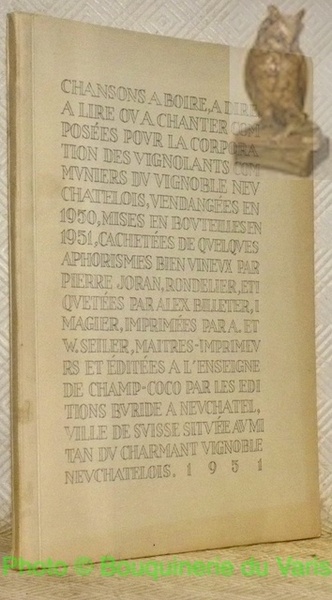 CHANSONS A BOIRE, A DIRE
A LIRE OV A CHANTER COM
POSÉES POVR LA CORPORA
TION DES VIGNOLANTS COM
MVNIERS DV VIGNOBLE NEV
CHATELOIS, VENDANGÉES EN
1950, MISES EN BOVTEILLES EN
1951, CACHETÉES DE QVELQVES
APHORISMES BIEN VINEVX PAR
PIERRE JORAN, RONDELIER, ETI
QVETÉES PAR ALEX BILLETER, I
MAGIER, IMPRIMÉES PAR A. ET
W. SEILER, MAITRES-IMPRIMEV
RS ET ÉDITÉES A L'ENSEIGNE
DE CHAMP-COCO PAR LES EDI
TIONS BVRIDE A NEVCHATEL,
VILLE DE SVISSE SITVÉE AV MI
TAN DV CHARMANT VIGNOBLE
NEVCHATELOIS. 1951
Photo © Bouquinerie du Varis